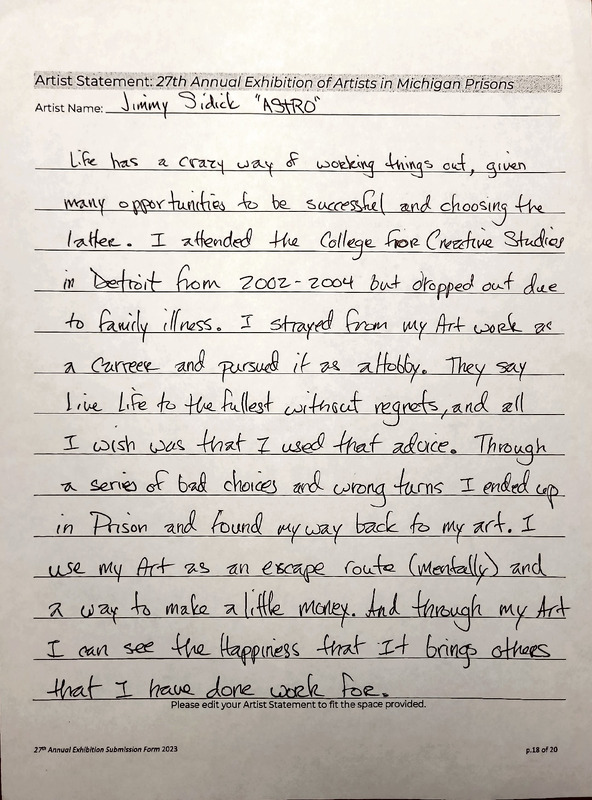 Artist Statement: 27th Annual Exhibition of Artists in Michigan Prisons
Artist Name: Jimmy Sidick "ASTRO"
Life has a crazy way of working things out, given
many opportunities to be successful and choosing the
latter. I attended the College for Creative Studies
in Detroit from 2002-2004 but dropped out due
to family illness. I strayed from my Art work as
a Carreer and pursued it as a Hobby. They say
Live Life to the fullest without regrets, and all
I wish was that I used that advice. Through
a series of bad choices and wrong turns I ended up
in Prison and found my way back to my art. I
use my Art as an escape route (mentally) and
a way to make a little money. And through my Art
I can see the Happiness that It brings others
that I have done work for.
Please edit your Artist Statement to fit the space provided.
27th Annual Exhibition Submission Form 2023 p.18 of 20